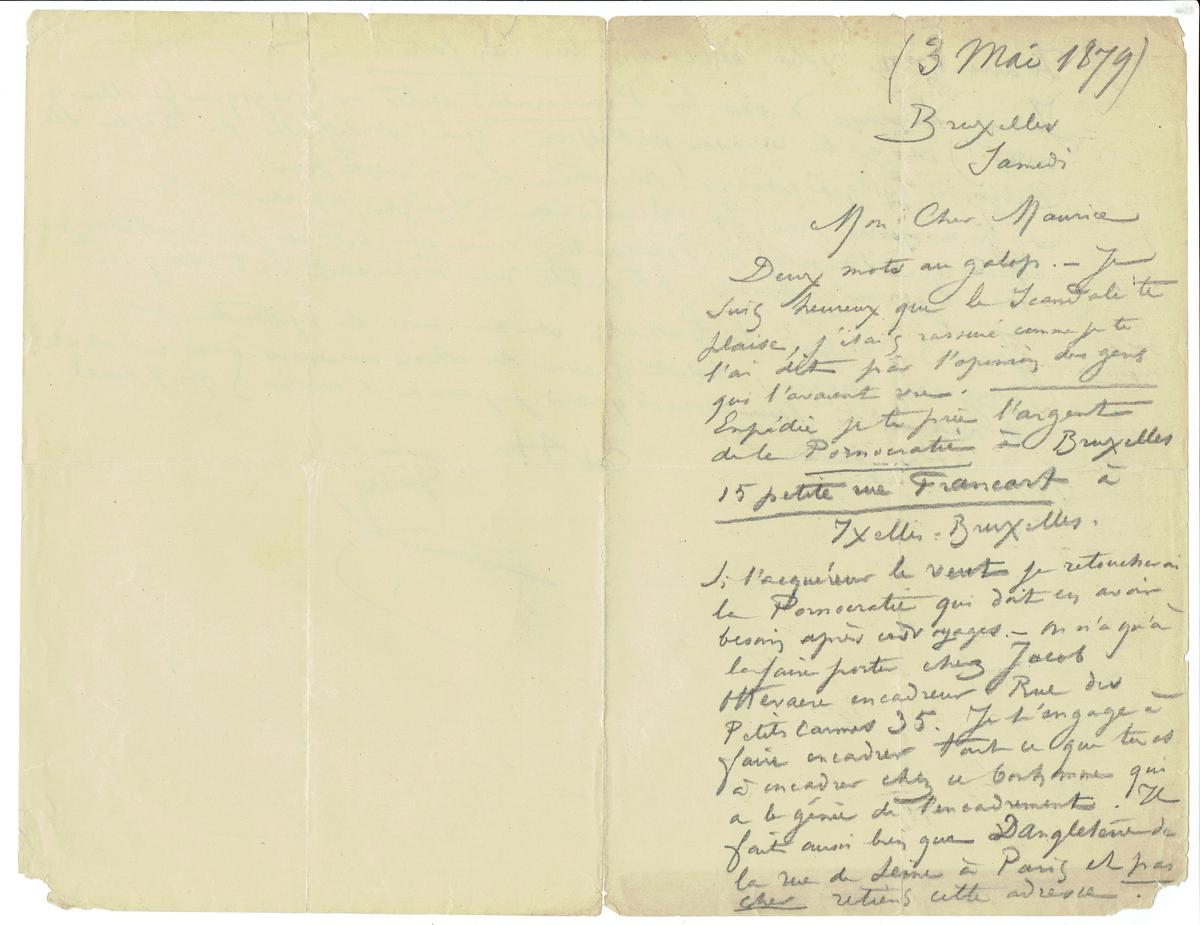 (3 Mai 1879)
Bruxelles
Samedi
Mon Cher Maurice
Deux mots au galop. – Je
suis heureux que le Scandale te
plaise, j'étais rassuré comme je te
l'ai dit par l'opinion des gens
qui l'avaient vu.
Expédie je te prie l'argent
de la Pornocratie à Bruxelles
15 petite rue Francart à
Ixelles-Bruxelles.
Si l'acquéreur le veut je retoucherai
la Pornocratie qui doit en avoir
besoin après voyages. – On n'a qu'à
la faire porter chez Jacob
encadreur Rue des
Petits Carmes 35. Je t'engage à
faire encadrer tout ce que tu as
à encadrer chez ce bonhomme qui
a le génie de l'encadrement. Il
fait aussi bien que Dangleterre de
la rue de Seine à Paris et pas
cher retiens cette adresse.